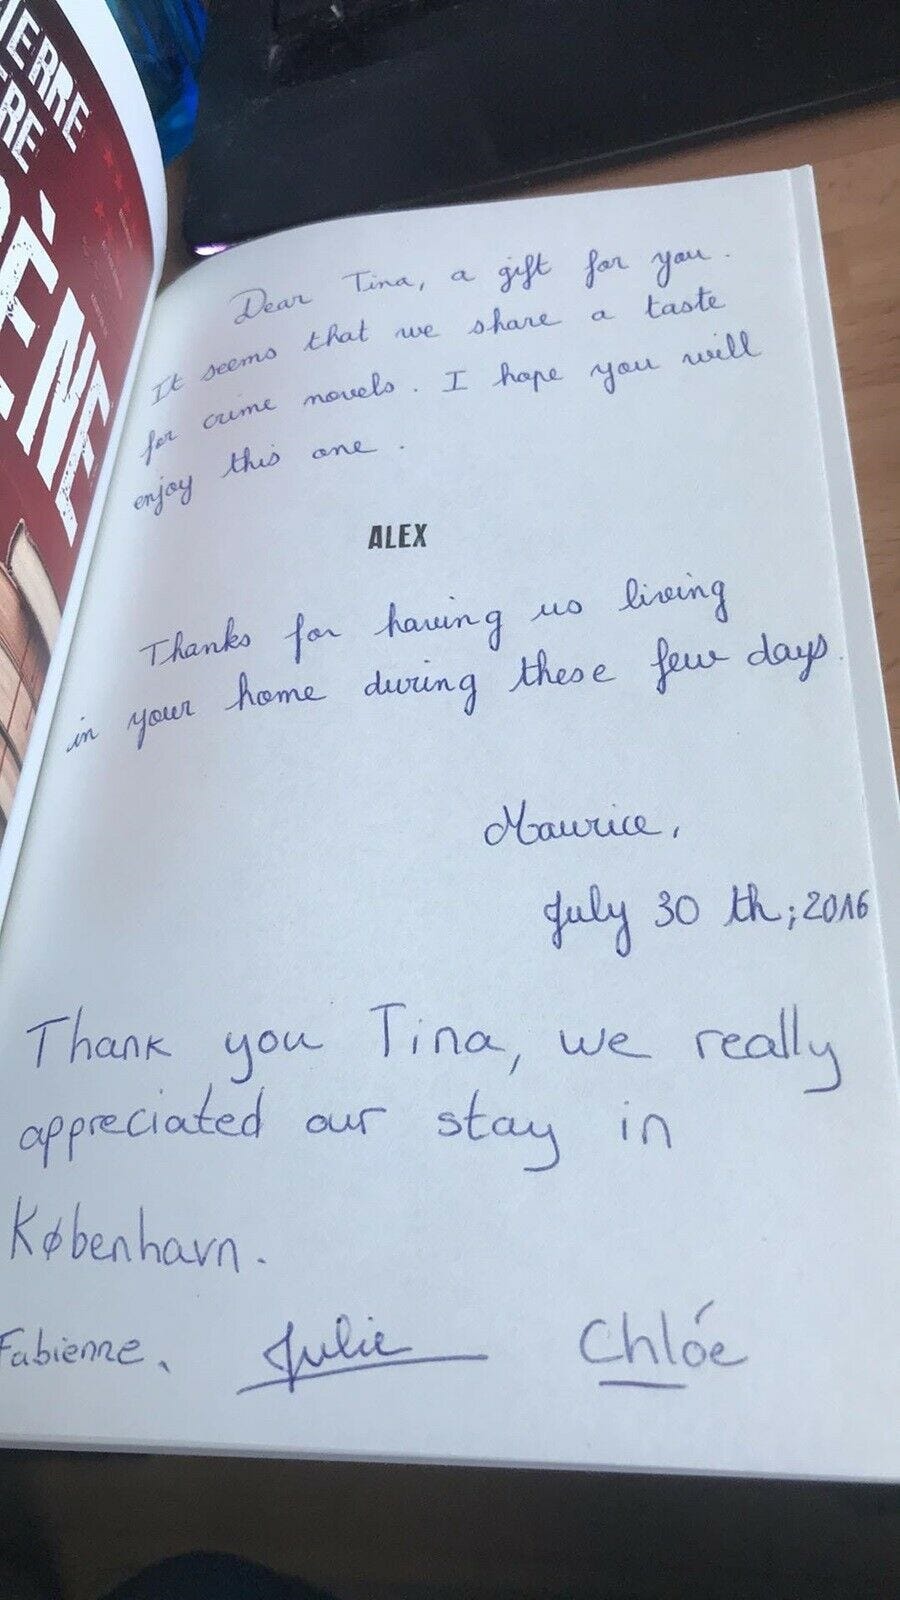 IERRE
Dear Tina, a gift for you.
It seems that we share a taste
for crime novels. I hope you will
enjoy this one.
ALEX
Thanks for having us living
in your home during these few days.
Maurice,
July 30 th; 2016
Thank you Tina, we really
appreciated our stay in
København.
Fabienne, Julie Chlóe